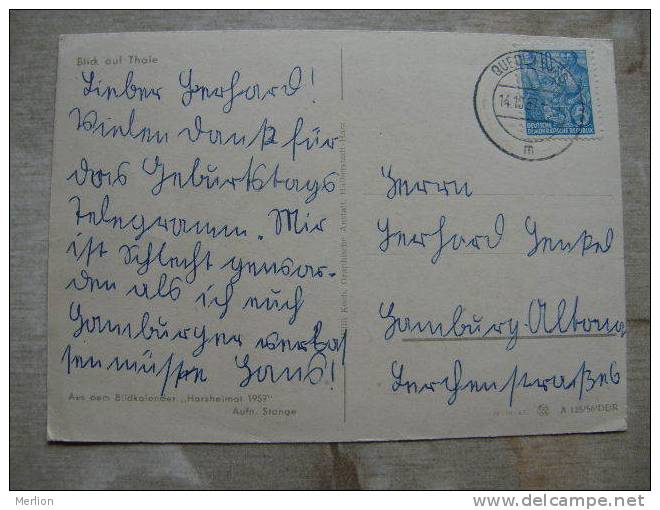 Blick auf Thale
Lieber Gerhard!
Vielen Dank für
das Geburtstags
Telegramm. Mir
ist Schlecht geworden
den als ich euch
Hamburger verlas
sen müsste Hans!
Aus dem Bildkalender „Harzheimat 1959"
Aufn. Stange
Graphische Anstalt, Halberstadt Harz
14.10
m
DEUTSCHE
DEMOKRATISCHE REPUBLIK
Herrn
Gerhard Henkel
Hamburg-Altona
Lerchenstraße 6
A 125/56 DDR
Merlion
www.delcampe.net